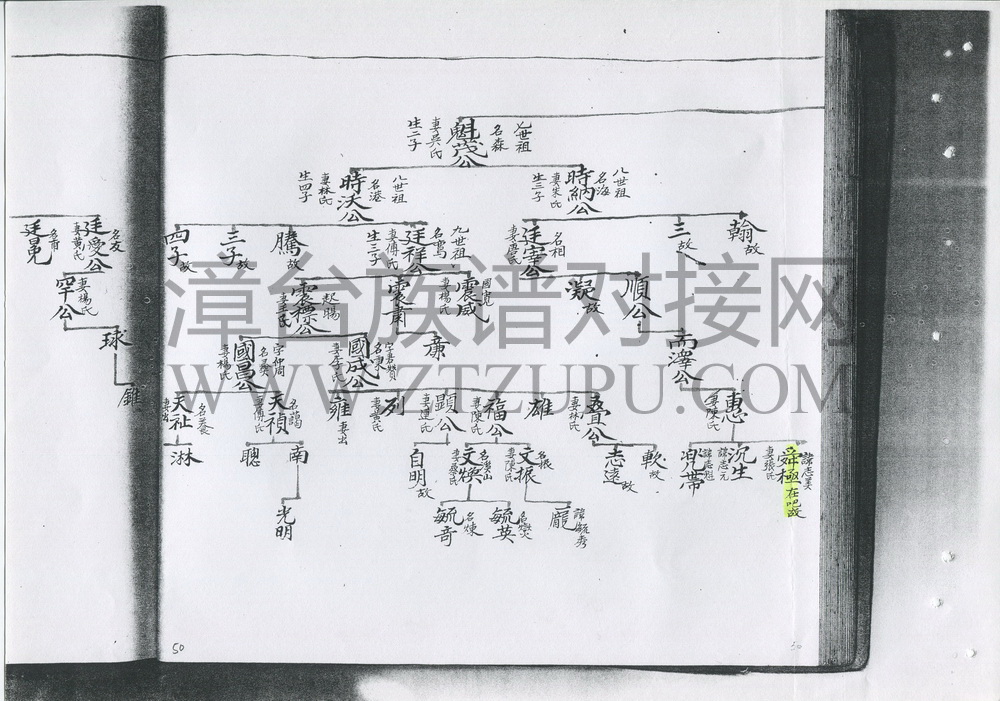 七世祖
名森
魁茂公
妻吳氏
生二子
八世祖
名海
時納公
妻宋氏
生三子
八世祖
名港
時沃公
妻林氏
生四子
翰故
三故
名相
廷宰公
九世祖
名鸞
廷祥公
妻傅氏
生三子
騰故
三子故
四子故
名友
廷爱公
妻黃氏
廷晃
順公
凝故
國寵
震威
妻楊氏
震肅
賜
震標公
妻王氏
妻楊氏
罕公
漳台族谱对接网
而澤公
廉
字嘉賢
名東
國成公
妻李氏
字仲周
國昌公
妻楊氏
球
WWW.ZTZUPU.COM
惠
妻陳氏
叠公
妻林氏
雄
福公
妻陳氏
顯公
妻連氏
列
妻黃氏
雍
妻出
名藹
天禎
妻傅氏
天祉
錐
諱志美
舜極在吧故
妻張氏
諱志元
沉生
諱志彪
兜帶
軟故
志遠故
名振
文振
妻陳氏
文煥
妻蔡氏
自明故
南
聰
淋
諱毓秀
龐
毓英
名煉
毓奇
光明
50
50